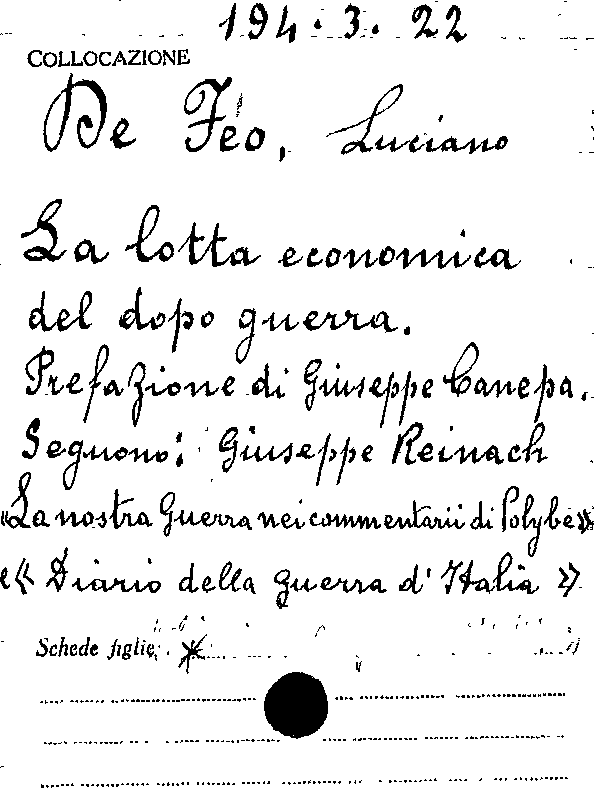 194.3.22
COLLOCAZIONE
De Feo, Luciano
La lotta economica
del dopo guerra.
Prefazione di Giuseppe Canepa.
Seguono: Giuseppe Reinach
«La nostra Guerra nei commentarii di Polybe»
e « Diario della guerra d'Italia »
Schede figlie: